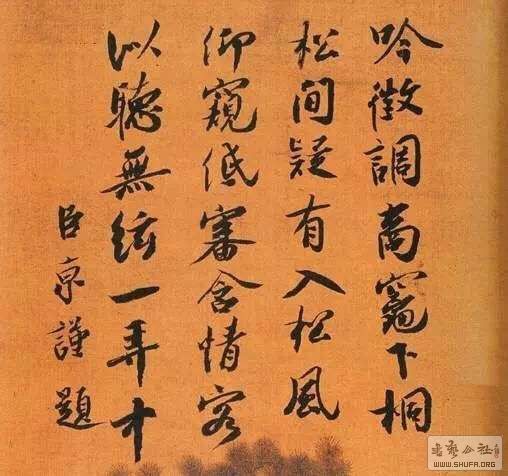 吟徵調商竈下桐
松間疑有入松風
仰窺低審含情客
似聽無絃一弄中
臣京謹題
书艺公社
WWW.SHUFA.ORG